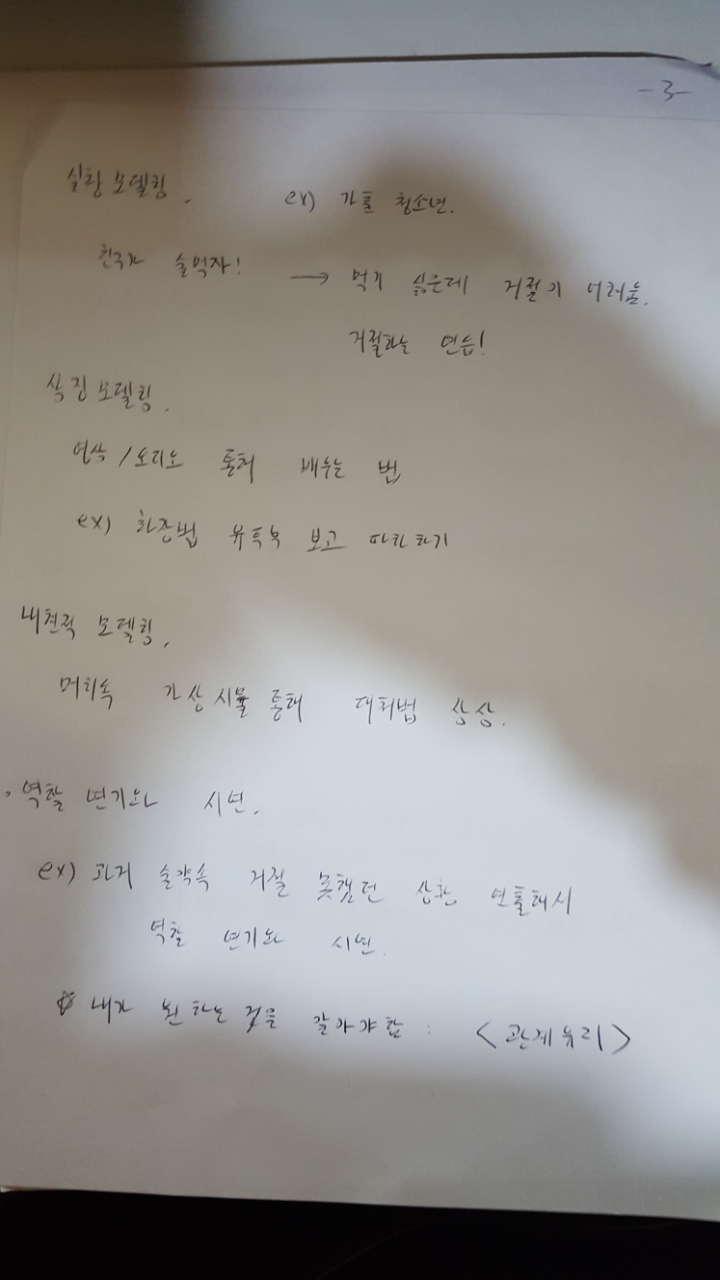 -3-
실황 모델링. ex) 가출 청소년.
친구가 술먹자! → 먹기 싫은데 거절이 어려움.
거절하는 연습!
상징모델링.
영상/오디오 통해 배우는 법
ex) 화장법 유튜브 보고 따라하기
내현적 모델링.
머리속 가상시물 통해 대처법 상상.
· 역할 연기와 시연.
ex) 과거 술약속 거절 못했던 상황 연출해서
역할 연기와 시연.
☆ 내가 원하는 것을 알아야함 : <관계유리>